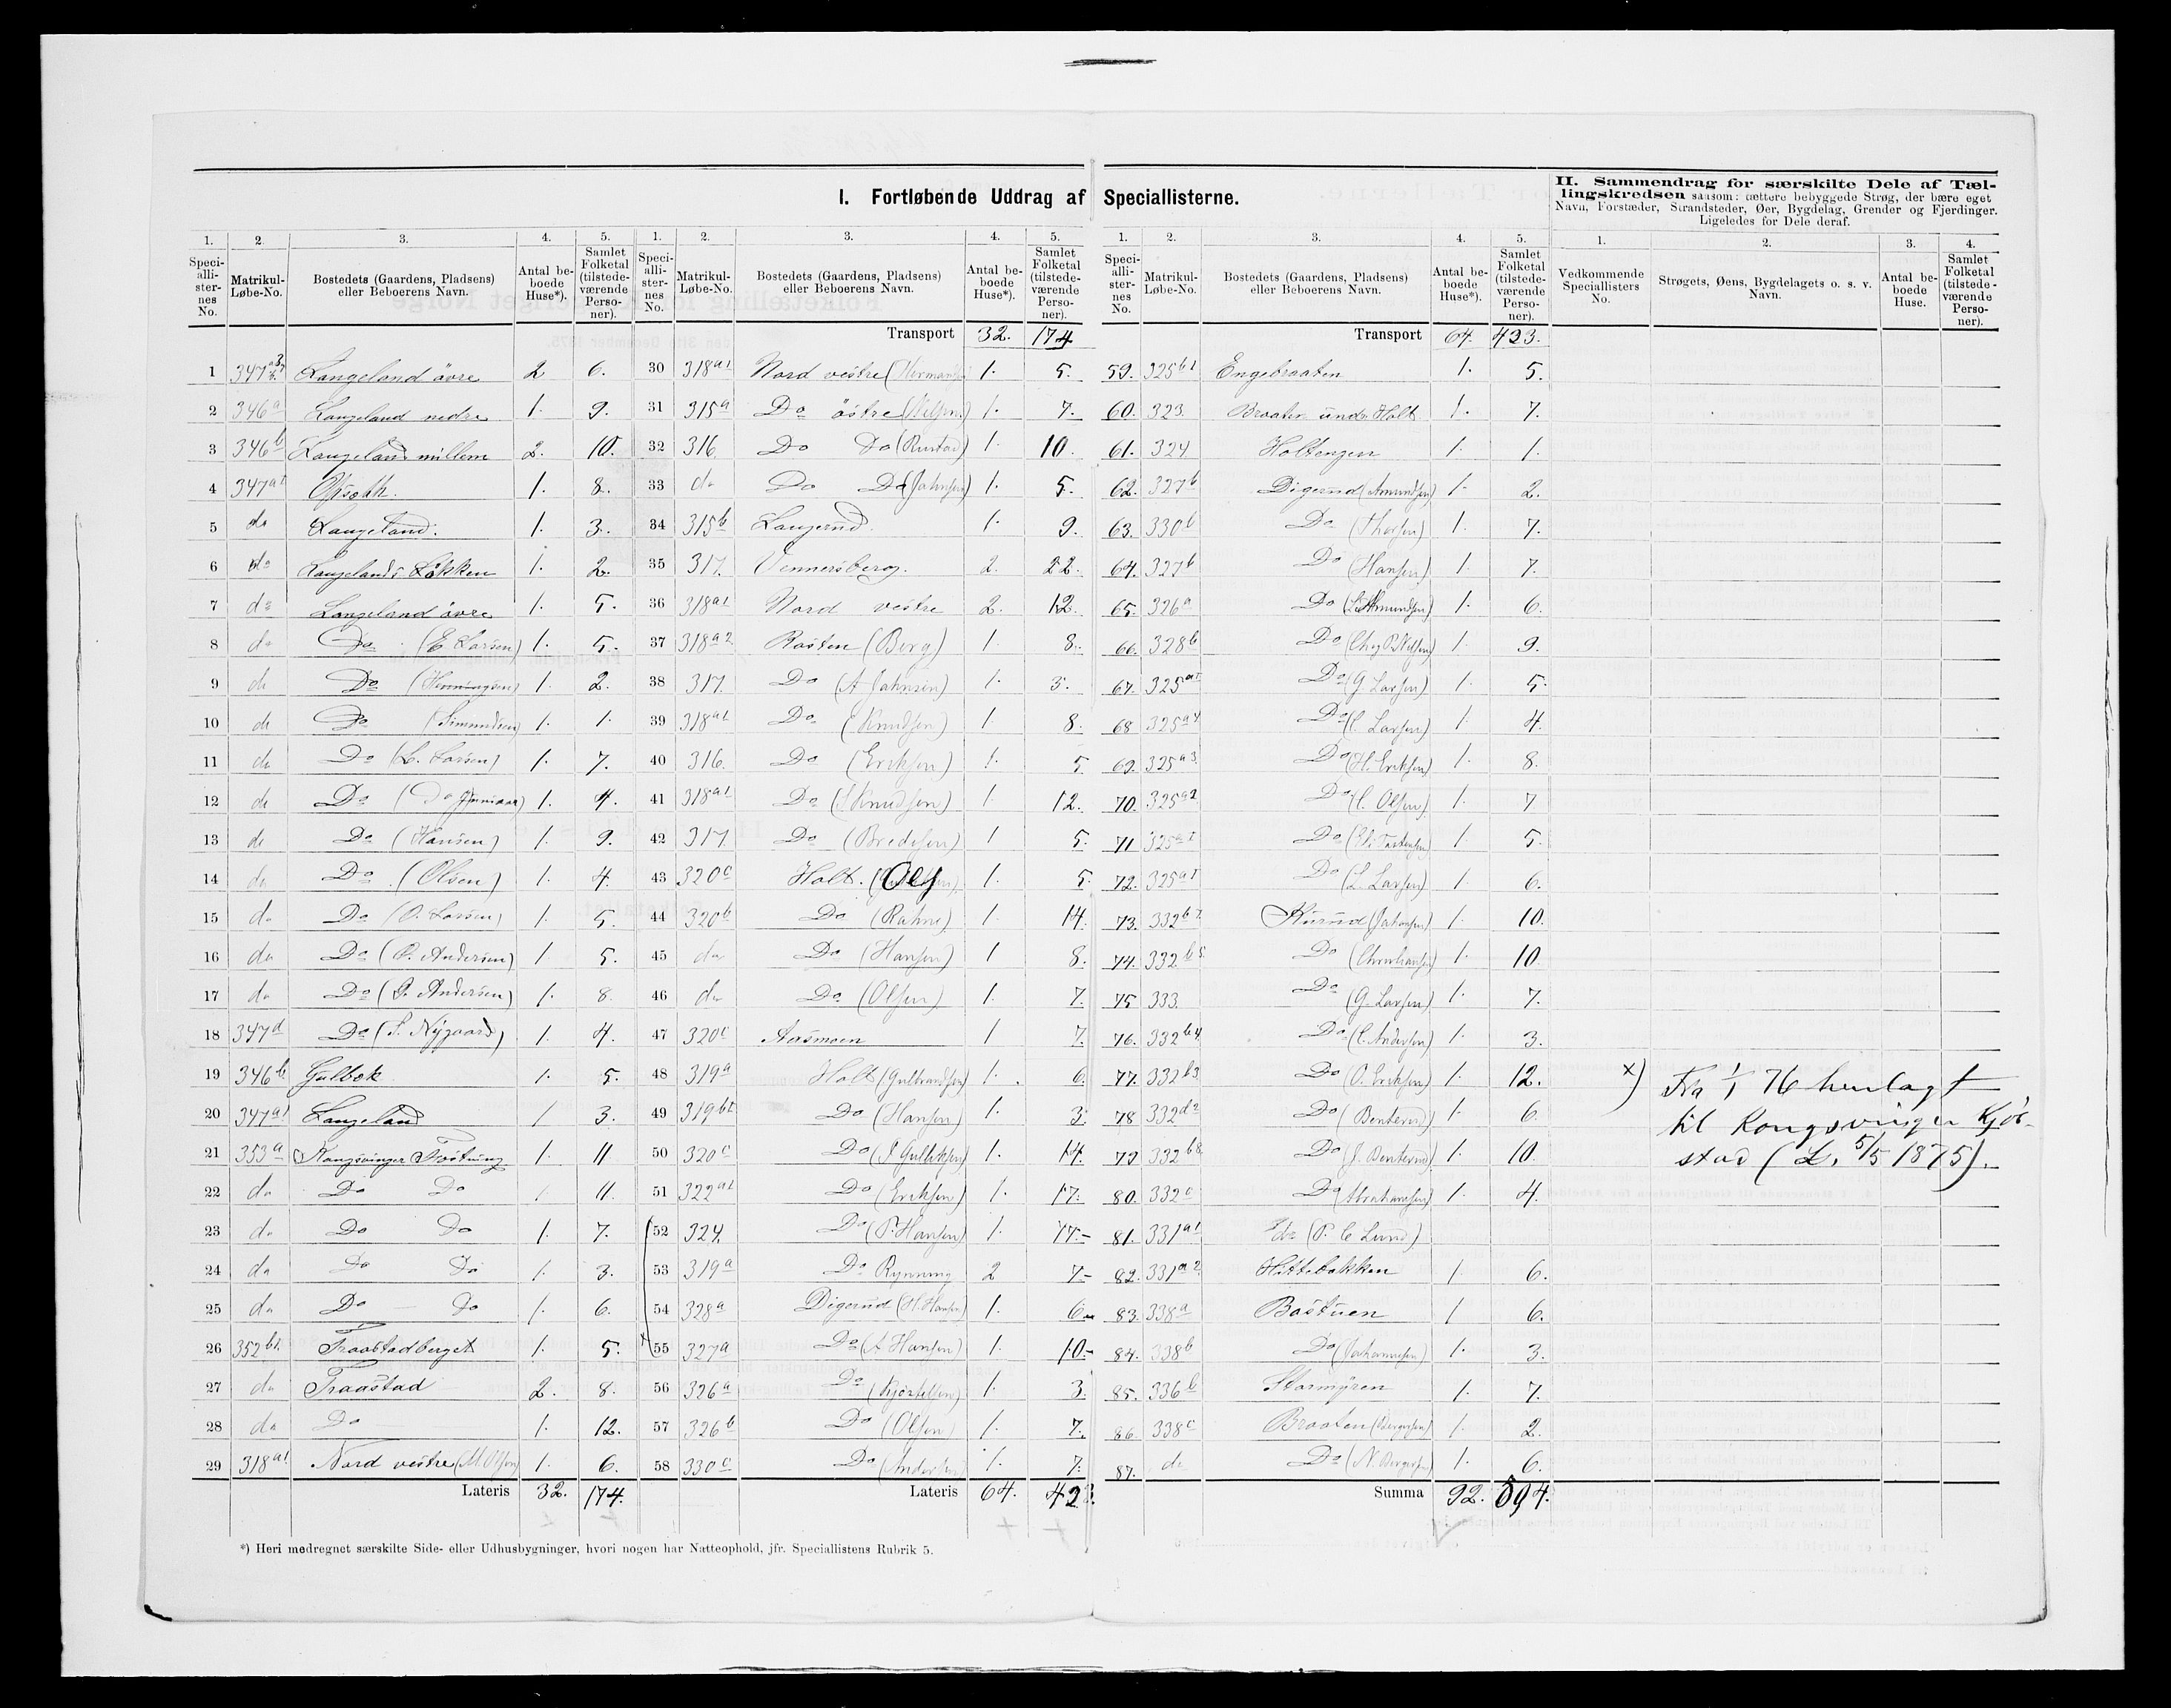 I. Fortløbende Uddrag af Speciallisterne.
II. Sammendrag for særskilte Dele af Tæl-
lingskredsen saasom: tættere bebyggede Strøg, der bære eget
Navn, Forstæder, Strandsteder, Øer, Bygdelag, Grender og Fjerdinger.
Ligeledes for Dele deraf.
1. 2. 3. 4. 5. 1. 2. 3. 4. 5. 1. 2. 3. 4. 5. 1. 2. 3. 4.
Speci-alli-ster-nes No. Matrikul-Løbe-No. Bostedets (Gaardens, Pladsens) eller Beboerens Navn. Antal be-boede Huse*). Samlet Folketal (tilstede-værende Perso-ner).
Speci-alli-ster-nes No. Matrikul-Løbe-No. Bostedets (Gaardens, Pladsens) eller Beboerens Navn. Antal be-boede Huse*). Samlet Folketal (tilstede-værende Perso-ner).
Speci-alli-ster-nes No. Matrikul-Løbe-No. Bostedets (Gaardens, Pladsens) eller Beboerens Navn. Antal be-boede Huse*). Samlet Folketal (tilstede-værende Perso-ner).
Vedkommende Speciallisters No. Strøgets, Øens, Bygdelagets o. s. v. Navn. Antal be-boede Huse. Samlet Folketal (tilstede-værende Perso-ner).
1 Langeland övre 2 6.
2 346a Langeland nedre 1. 9.
3 346b Langeland millem 2. 10.
4 347a1 1. 8.
5 do Langeland. 1. 3.
6 do Langelands Løkken 1. 2.
7 do Langeland övre 1. 5.
8 do Do (E Larsen) 1. 5.
9 do Do (Henningsen) 1. 2.
10 do Do (Simundsen) 1. 1.
11 do Do (L. Larsen) 1. 7.
12 do Do (Do 1. 4.
13 do Do (Hansen) 1. 9.
14 do Do (Olsen) 1. 4.
15 do Do (O. Larsen) 1. 5.
16 do Do (O. Andersen) 1. 5.
17 do Do (A. Andersen) 1. 8.
18 347d Do (S. Nygaard) 1. 4.
19 346b Gulbek 1. 5.
20 347a1 Langeland 1 3.
21 353a Kongsvinger Fæstning 1. 11
22 do Do Do 1 11.
23 do Do Do 1. 7.
24 do Do Do 1. 3.
25 do Do Do 1. 6.
26 352b1 Traastadberget 1. 5.
27 do Traastad 2. 8.
28 do Do 1. 12.
29 318a1 Nord vestre (M. Olsen) 1. 6.
Lateris 32. 174.
Transport 32. 174
30 318a1 Nord vestre 1. 5.
31 315a Do östre (Nilsen) 1. 7.
32 316. Do Do (Rustad) 1 10.
33 do Do Do (Johnsen) 1. 5.
34 315b Langerud. 1. 9.
35 317. Vennersberg. 2. 22.
36 318a1 Nord vestre 2. 12.
37 318a2 Rasten (Berg) 1 8.
38 317. Do (A Johnsen) 1. 3.
39 318a1 Do (Knudsen) 1. 8.
40 316. Do (Eriksen) 1. 5
41 318a1 Do (Knudsen) 1 12.
42 317. Do (Bredesen) 1 5.
43 320c Holt. 1. 5.
44 320b Do (Rahne) 1 14.
45 do Do (Hansen) 1 8.
46 do Do (Olsen) 1. 7.
47 320c Aasmoen 1 7.
48 319a Holt (Gulbrandsen) 1. 6.
49 319b1 Do (Hansen) 1. 3.
50 320c Do (Gulliksen) 1. 14.
51 322a1 Do (Eriksen) 1. 17.
52 324. Do (P. Hansen) 1.
53 319a Do Rynning 2 7
54 328a Digerud (H. Hansen) 1. 6
55 327a Do (A Hansen) 1. 10
56 326a Do 1. 3.
57 326b Do (Olsen) 1. 7.
58 330c Do (Andersen) 1. 7.
Lateris 64. 423.
Transport 64. 423.
59. 325b1 Engebraaten 1. 5.
60. 323. Braaten under Holt 1. 7.
61. 324 Holtengen 1. 1.
62. 327b Digerud (Amundsen) 1. 2.
63. 330b Do (Thorsen) 1. 7.
64. 327b Do (Hansen) 1. 7.
65. 326a Do 1. 6.
66. 328b Do 1. 9.
67. 325a1 Do (G. Larsen) 1. 5.
68 325a4 Do (C. Larsen) 1. 4.
69. 325a3 Do (H. Eriksen) 1. 8.
70. 325a2 Do (C. Olsen) 1. 7
71 325a1 Do 1. 5.
72. 325a1 Do (L. Larsen) 1. 6.
73. Kurud (Johansen) 1. 10.
74. 332b5 Do 1. 10
75 333. Do (G. Larsen) 1. 7.
76. 332b4 Do (C. Andersen) 1. 3.
77. 332b3 Do (O. Eriksen) 1. 12.
78 332d2 Do (Benterud) 1. 6.
79 332b8 Do (J. Benterud) 1. 10.
80. 332c Do (Abrahamsen) 1. 4.
81. 331a1 Do (P. C Lund)
82. 331a2 Hattebakken 1 6.
83. 338a Bastuen 1 6.
84. 338b Do (Johannesen) 1. 3.
85. 336b Stormyren 1. 7.
86. 338c Braaten (Bergersen) 1. 2.
87. do Do (N. Bergersen) 1. 6.
Summa 92. 594.
x) Fra 1/1 76 henlagt
til Kongsvinger Kjøb-
stad (L. 5/5 1875).
*) Heri medregnet særskilte Side- eller Udhusbygninger, hvori nogen har Natteophold, jfr. Speciallistens Rubrik 5.